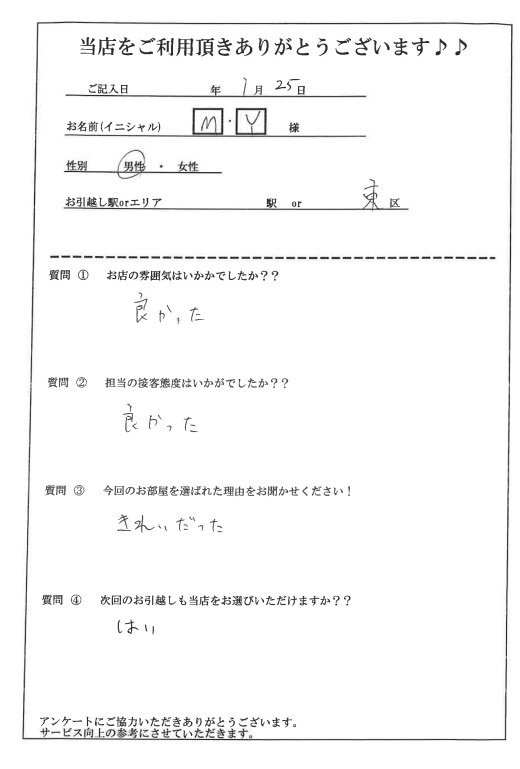 当店をご利用頂きありがとうございます♪♪
ご記入日 年 1月 25日
お名前(イニシャル) M・Y 様
性別 男性 ・ 女性
お引越し駅orエリア 駅 or 東 区
質問 ① お店の雰囲気はいかかでしたか??
良かった
質問 ② 担当の接客態度はいかがでしたか??
良かった
質問 ③ 今回のお部屋を選ばれた理由をお聞かせください!
きれいだった
質問 ④ 次回のお引越しも当店をお選びいただけますか??
はい
アンケートにご協力いただきありがとうございます。
サービス向上の参考にさせていただきます。